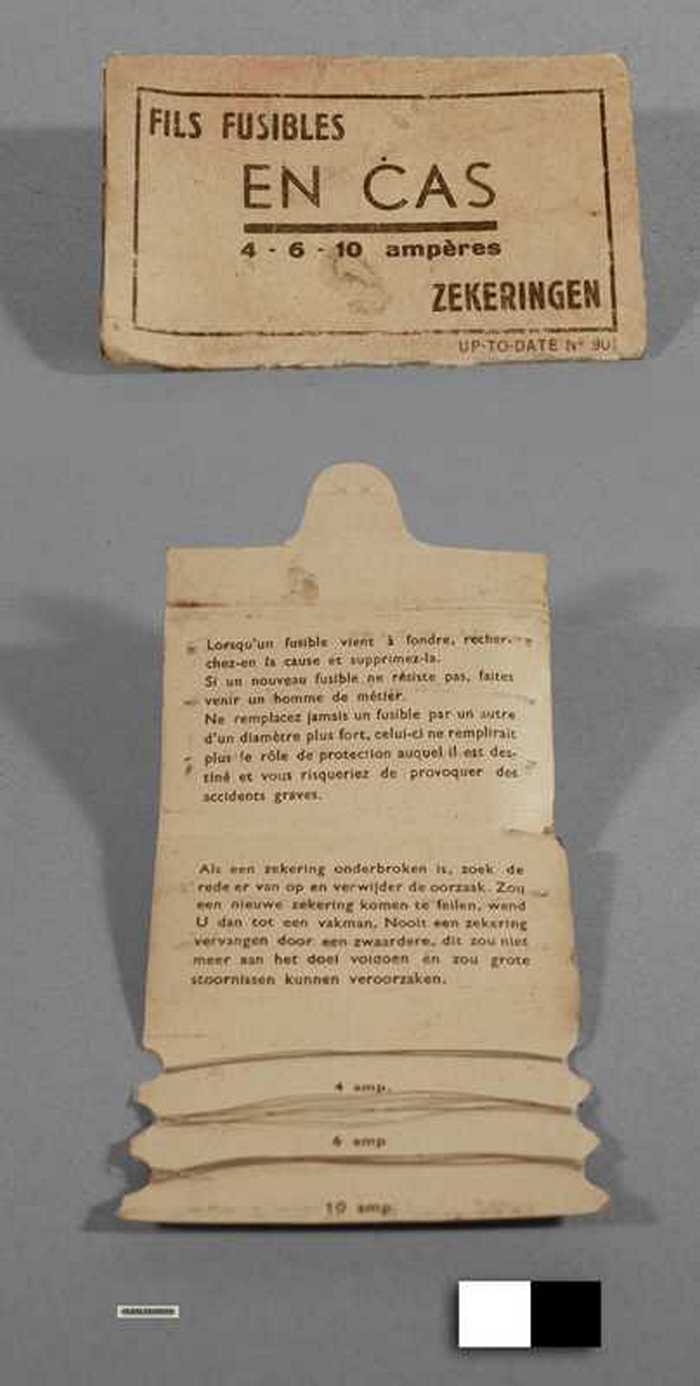 FILS FUSIBLES
EN CAS
4 - 6 - 10 ampères
ZEKERINGEN
UP-TO-DATE Nº 901
Lorsqu'un fusible vient à fondre, recher-
chez-en la cause et supprimez-la.
Si un nouveau fusible ne résiste pas, faites
venir un homme de métier.
Ne remplacez jamais un fusible par un autre
d'un diamètre plus fort, celui-ci ne remplirait
plus le rôle de protection auquel il est des-
tiné et vous risqueriez de provoquer des
accidents graves.
Als een zekering onderbroken is, zoek de
rede er van op en verwijder de oorzaak. Zou
een nieuwe zekering komen te feilen, wend
U dan tot een vakman. Nooit een zekering
vervangen door een zwaardere, dit zou niet
meer aan het doel voldoen en zou grote
stoornissen kunnen veroorzaken.
4 amp.
6 amp
10 amp.